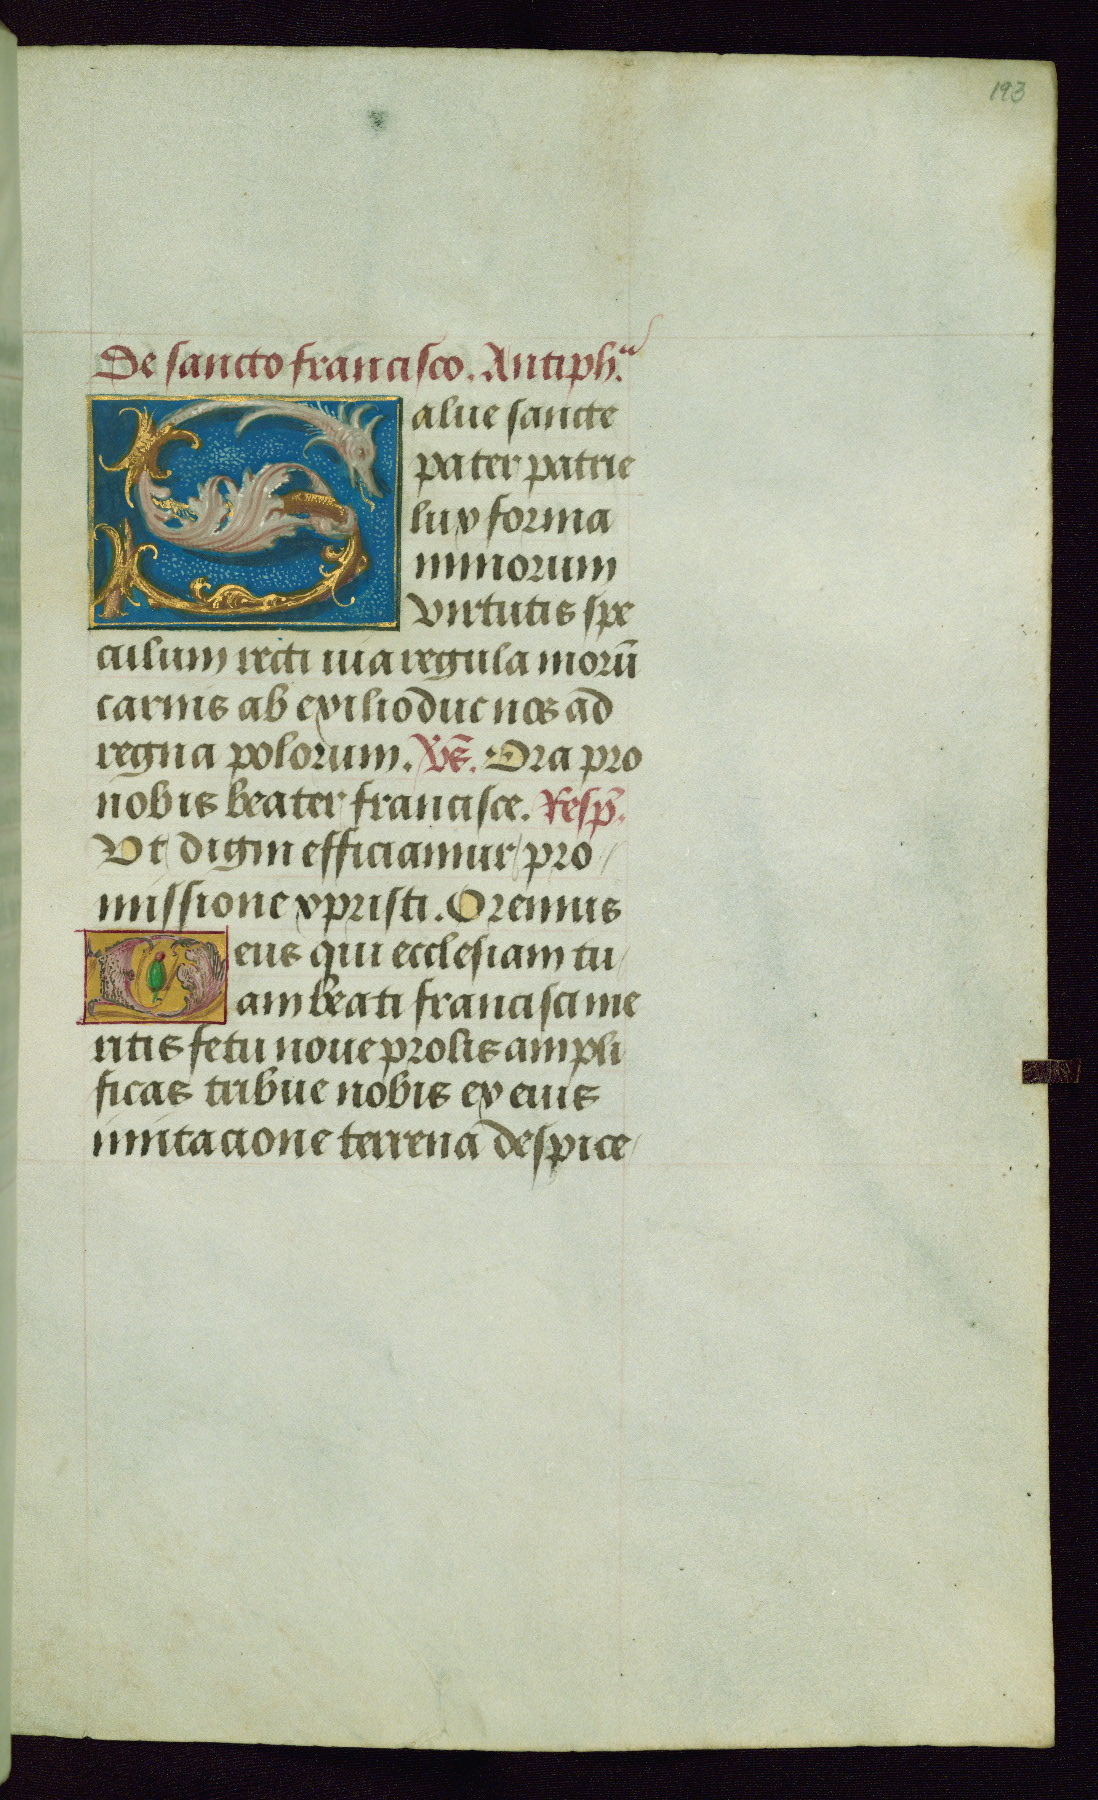 193
De sancto francisco. Antiph.a
Salue sancte
pater patrie
lux forma
minorum
virtutis spe
culum recti uia regula morū
carnis ab exilio duc nos ad
regna polorum. Vs̄. Ora pro
nobis beater francisce. Resp̄.
Ut digni efficiamur pro
missione xpristi. Oremus
Deus qui ecclesiam tu
am beati francisci me
ritis fetu noue prolis ampli
ficas tribue nobis ex eius
imitacione terrena despice